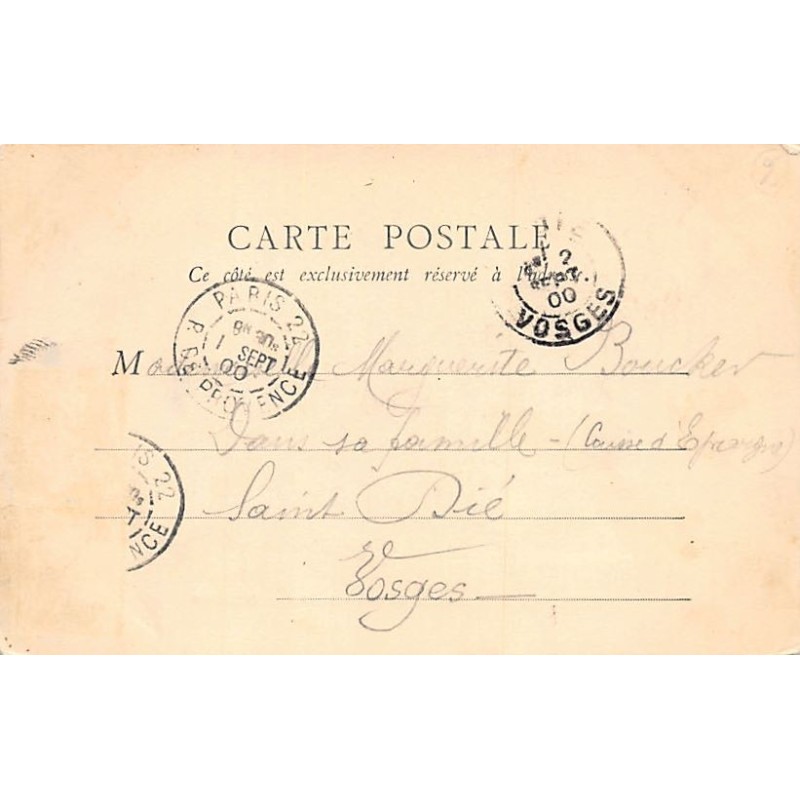 CARTE POSTALE
Ce côté est exclusivement réservé à l'adresse.
PARIS 22
1 SEPT
00
R. DE PROVENCE
2
00
VOSGES
Mademoiselle Marguerite Boucher
Dans sa famille - (Caisse d'Epargne)
Saint Dié
Vosges
IS 22
NCE